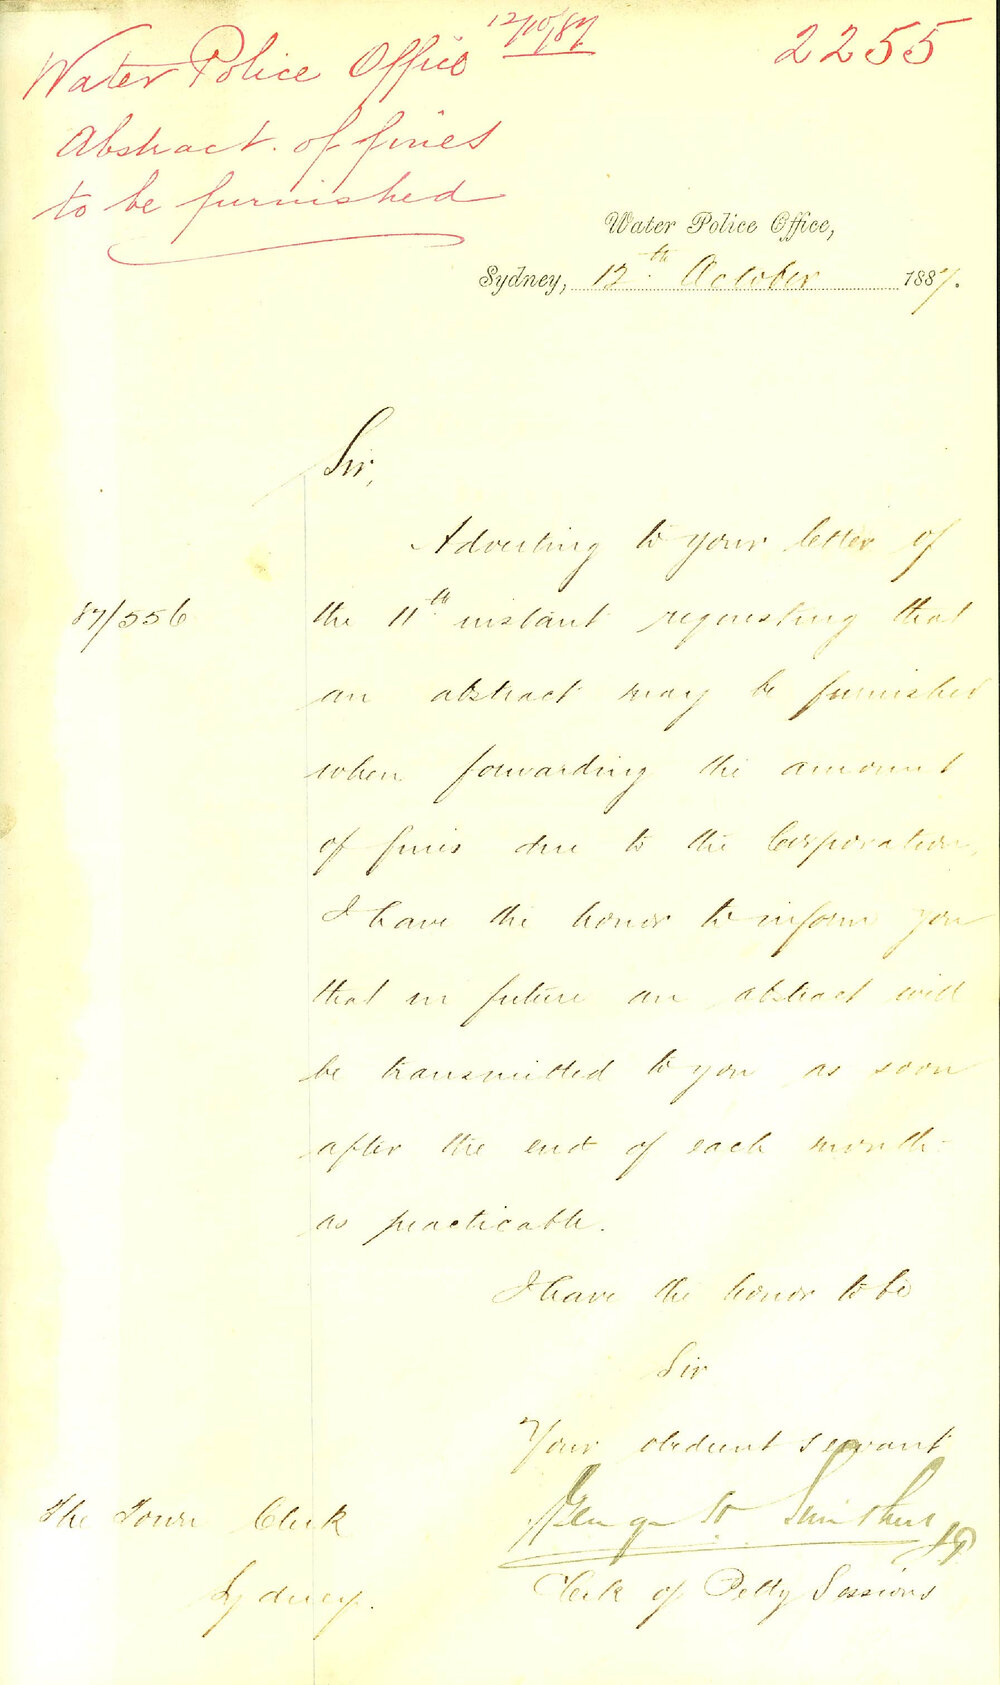 12/10/87
2255
Water Police Office
Abstract of fines
to be furnished
Water Police Office,
Sydney, 12th October 1887.
Sir,
Adverting to your letter of
87/556
the 11th instant requesting that
an abstract may be furnished
when forwarding the amount
of fines due to the Corporation,
I have the honor to inform you
that in future an abstract will
be transmitted to you as soon
after the end of each month
as practicable.
I have the honor to be
Sir
Your obedient servant
Clerk of Petty Sessions
The Town Clerk
Sydney.